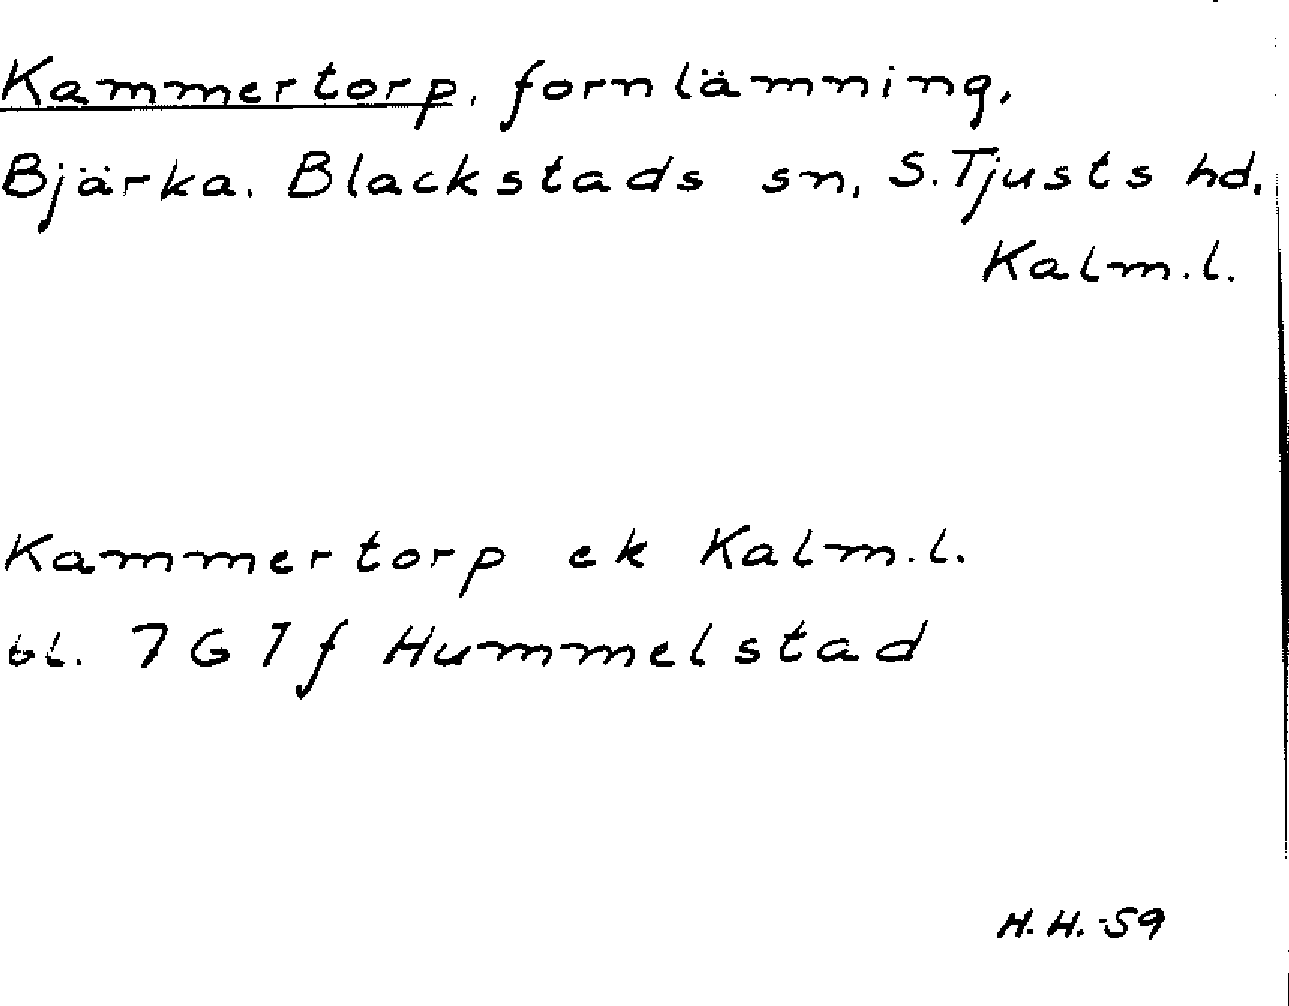 Kammertorp, fornlämning,
Bjärka. Blackstads sn, S. Tjusts hd,
Kalm.l.
Kammertorp ek Kalm.l.
bl. 7 G 7 f Hummelstad
H.H.-59